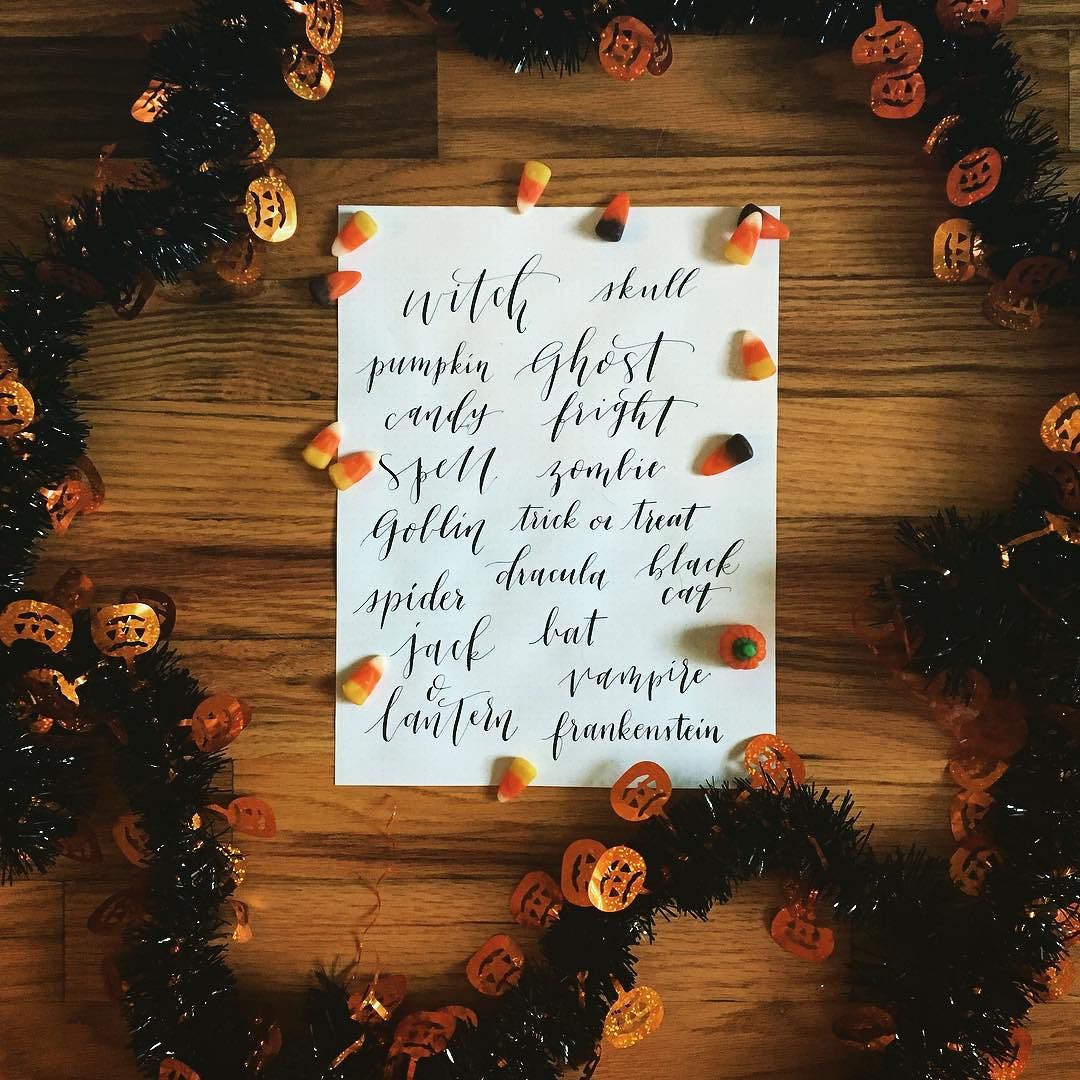 witch skull
pumpkin Ghost
candy fright
spell zombie
Goblin trick or treat
dracula black
spider cat
jack bat
o vampire
lantern frankenstein